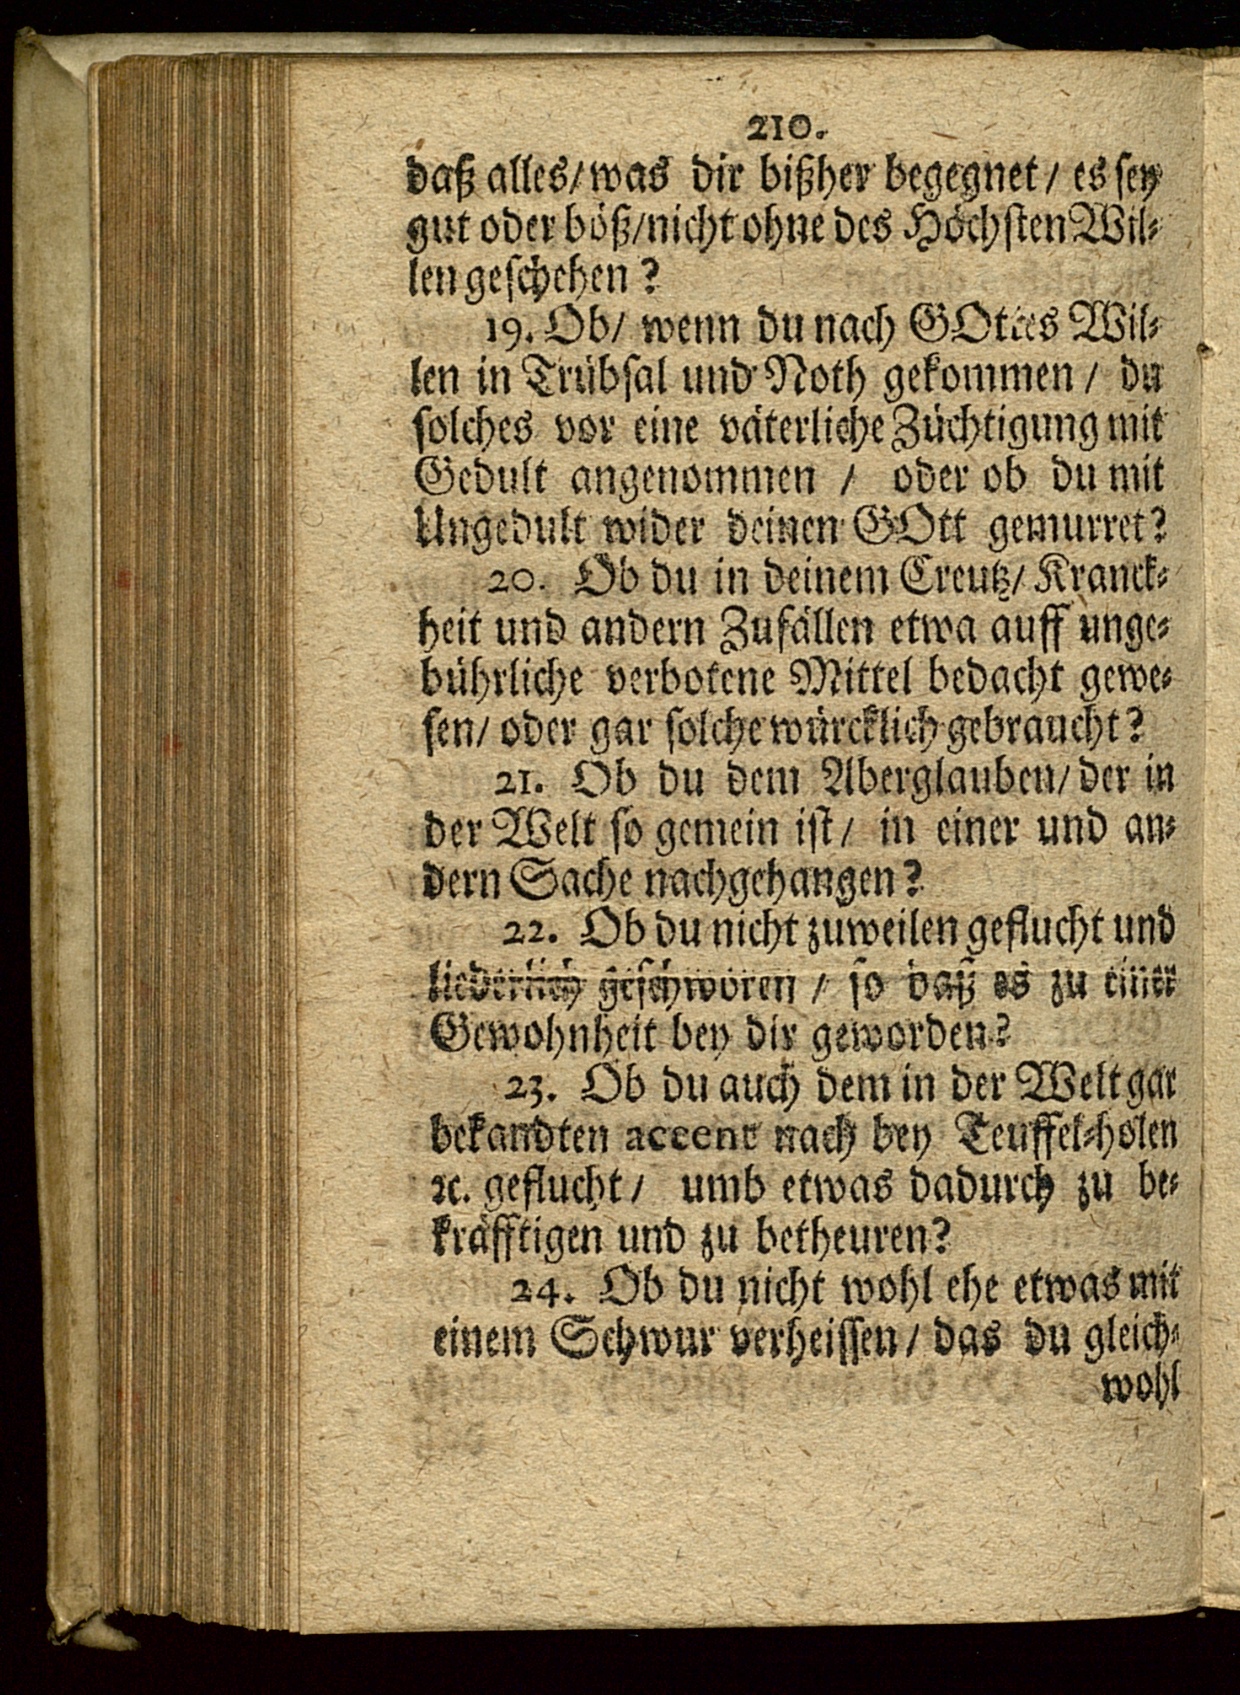 210.
daß alles/ was dir bißher begegnet / es sey
gut oder böß/ nicht ohne des Höchsten Wil-
len geschehen?
19. Ob/ wenn du nach GOttes Wil-
len in Trübsal und Noth gekommen / du
solches vor eine väterliche Züchtigung mit
Gedult angenommen / oder ob du mit
Ungedult wider deinen GOtt gemurret?
20. Ob du in deinem Creutz/ Kranck-
heit und andern Zufällen etwa auff unge-
bührliche verbotene Mittel bedacht gewe-
sen/ oder gar solche würcklich gebraucht?
21. Ob du dem Aberglauben/ der in
der Welt so gemein ist/ in einer und an-
dern Sache nachgehangen?
22. Ob du nicht zuweilen geflucht und
liederlich geschworen / so daß es zu einer
Gewohnheit bey dir geworden?
23. Ob du auch dem in der Welt gar
bekandten accent nach bey Teuffel-holen
ꝛc. geflucht / umb etwas dadurch zu be-
kräfftigen und zu betheuren?
24. Ob du nicht wohl ehe etwas mit
einem Schwur verheissen / das du gleich-
wohl